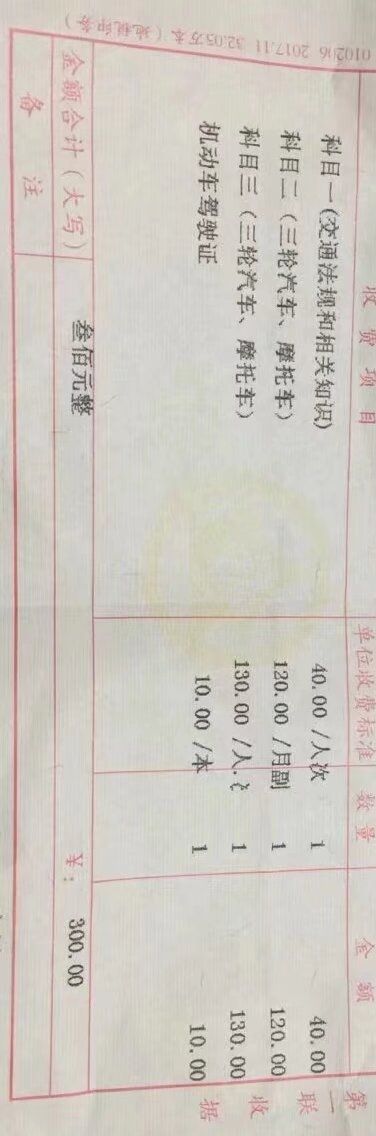 收费项目 单位收费标准 数量 金额
科目一(交通法规和相关知识) 40.00 /人次 1 40.00
科目二（三轮汽车、摩托车） 120.00 /月副 1 120.00
科目三（三轮汽车、摩托车） 130.00 /人. 1 130.00
机动车驾驶证 10.00 /本 1 10.00
金额合计（大写） 叁佰元整 ￥: 300.00
备注
第二联 收据
010206 2017.11 32.05万本